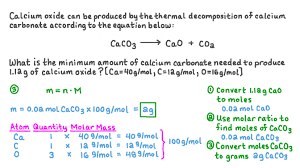 Calcium oxide can be produced by the thermal decomposition of calcium
carbonate according to the equation below:
CaCO₃ ⟶ CaO + CO₂
What is the minimum amount of calcium carbonate needed to produce
1.12g of calcium oxide? [Ca=40g/mol, C=12g/mol, O=16g/mol]
③ m = n · M
m = 0.02 mol CaCO₃ × 100g/mol = 2g
Atom Quantity Molar Mass
Ca 1 × 40g/mol = 40g/mol
C 1 × 12g/mol = 12g/mol
O 3 × 16g/mol = 48g/mol
100g/mol
① Convert 1.12g CaO
to moles
0.02 mol CaO
② Use molar ratio to
find moles of CaCO₃
0.02 mol CaCO₃
③ Convert moles CaCO₃
to grams 2g CaCO₃